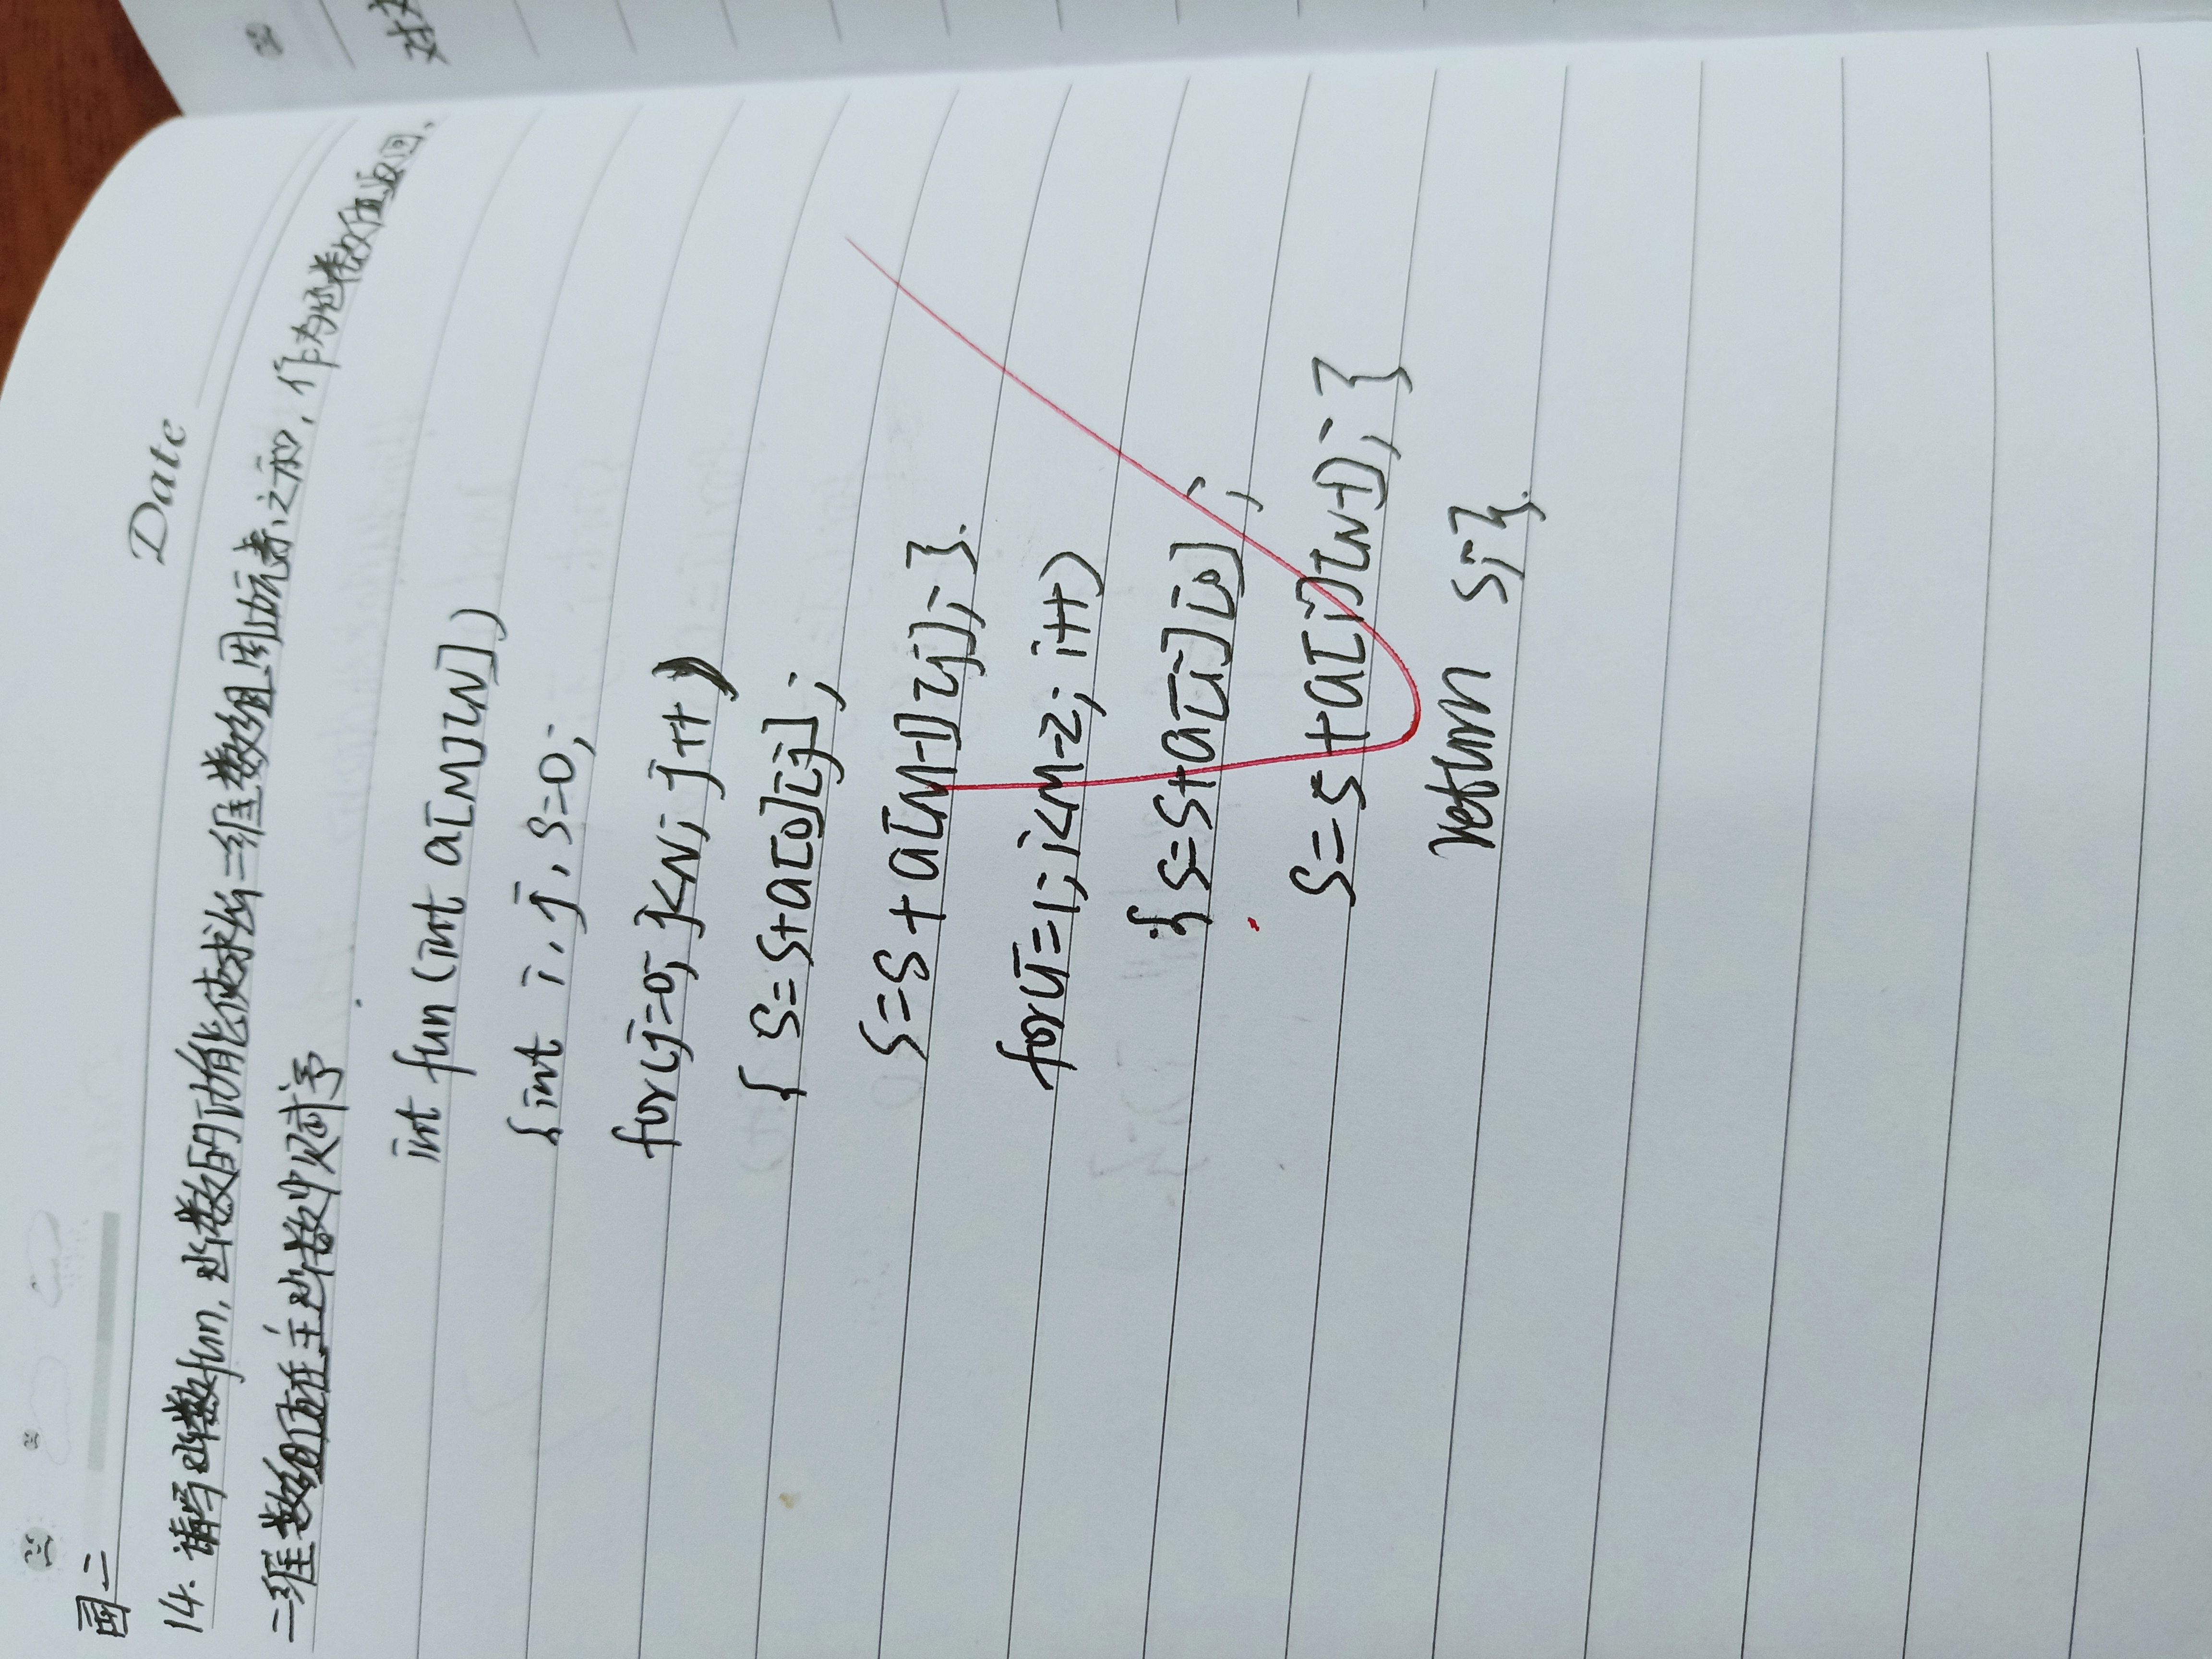 Date
国二
14. 请写函数fun, 函数的功能使求出二维数组周边元素之和, 作为函数值返回,
二维数组值在主函数中赋予
int fun (int a[M][N])
{int i, j, s=0;
for(j=0; j<N; j++)
{ s=s+a[0][j];
s=s+a[M-1][j]; }.
for(i=1; i<M-2; i++)
{ s=s+a[i][0];
s=s+a[i][N-1]; }
return s;}.